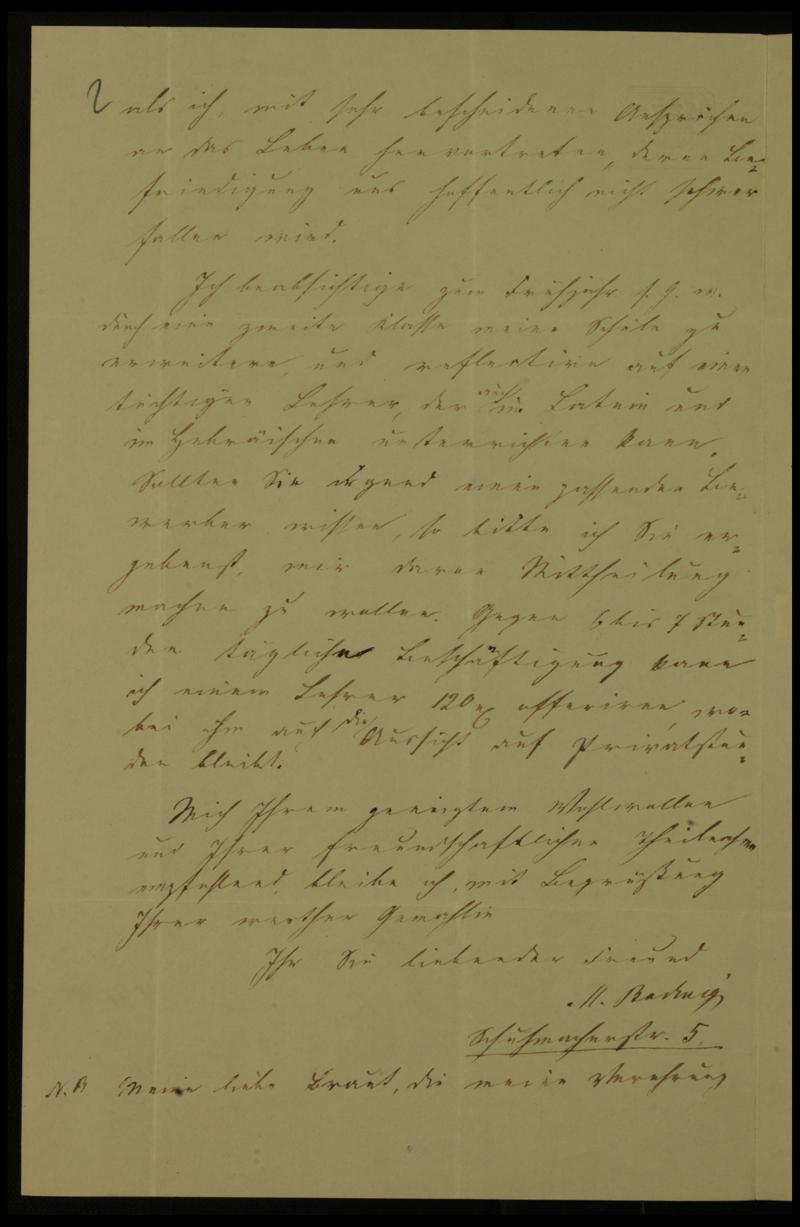 als ich, mit sehr bescheidenen Ansprüchen
an das Leben hervortreten, deren Be=
friedigung uns hoffentlich nicht schwer
fallen wird.
Ich beabsichtige zum Frühjahr s. G. w.
durch eine zweite Klasse meine Schule zu
erweitern, und reflectire auf einen
tüchtigen Lehrer, der auch im Latein und
im Hebräischen unterrichten kann.
Sollten Sie irgend einen passenden Be=
werber wissen, so bitte ich Sie er=
gebenst, mir davon Mittheilung
machen zu wollen. Gegen 6 bis 7 Stun=
den tägliche Beschäftigung kann
ich einem Lehrer 120 offeriren, wo=
bei ihm auch die Aussicht auf Privatstun=
den bleibt.
Mich Ihrem geneigtem Wohlwollen
und Ihrer freundschaftlichen Theilnahme
empfehlend, bleibe ich, mit Begrüßung
Ihrer werthen Gemahlin
Ihr Sie liebender Freund
M.
Schuhmacherstr. 5.
N.B Meine liebe Braut, die meine Verehrung